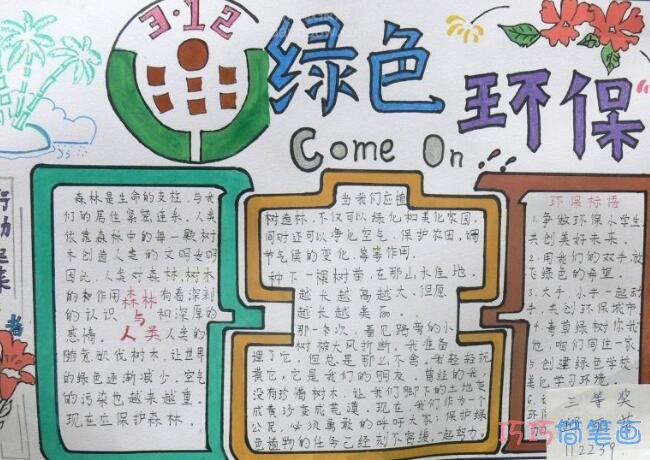 3·12
绿色
环保
Come On!!
行动起来
森林是生命的支柱,与我
们的居住紧密连系。人类
依靠森林中的每一颗树
木创造人类的文明
因此,人类对森林,树木
的和作用 有着深刻
的认识 和深厚的
感情。 人类的
森林
与
人类
随意砍伐树木,让世界
的绿色逐渐减少。空气
的污染也越来越重。
现在应保护森林。
当我们应植
树造林,不仅可以绿化和美化家园,
同时还可以净化空气、保护农田、调
节气候的变化,等等作用。
种下一棵树苗,在那山水佳地。
越长越高越大,但愿
越长越美丽。
那一次,看见路旁的小
树被大风折断,我准备
埋了它,但总是那么不舍。我轻轻抚
摸它,它是我们的朋友。曾经的我
没有珍惜树木,让我们脚下的土地变
成黄沙变成荒漠。现在,我们作为一个
公民,必须勇敢的呼吁大家,保护绿
色植物的任务已经刻不容缓,一起努力。
环保标语
1.争做环保小学生,
共创美好未来。
2.用我们的双手,放
飞绿色的希望。
3.大手,小手一起动
手,共创环保城市。
4.青草绿树你我
他,咱们同住一家。
5创建绿色学校,
美化学习环境。
6.
三等奖
112239.
巧巧简笔画